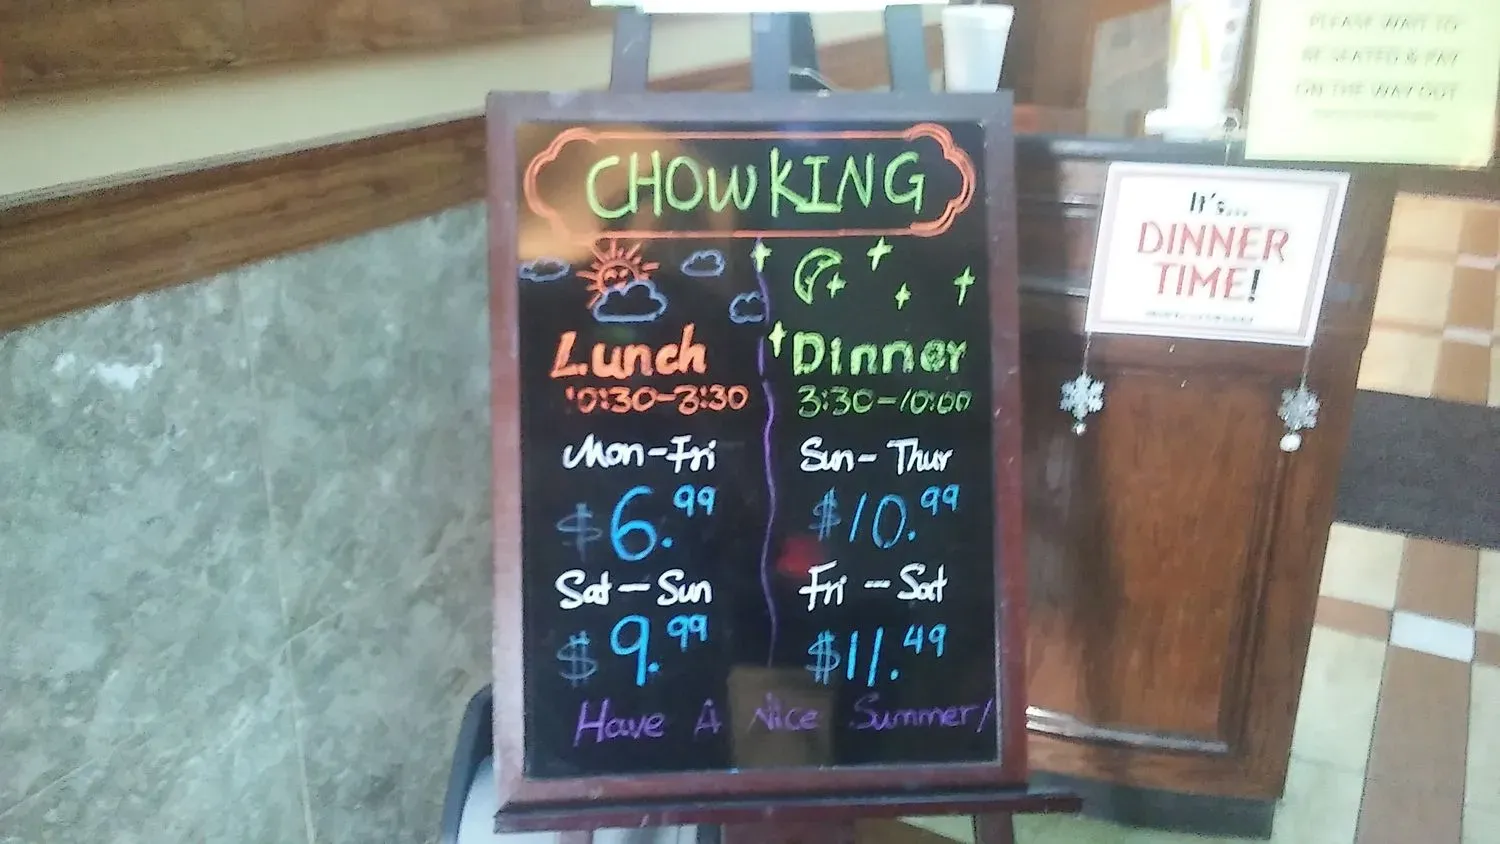 CHOWKING
Lunch
10:30-3:30
Mon-Fri
$6.99
Sat-Sun
$9.99
Dinner
3:30-10:00
Sun-Thur
$10.99
Fri-Sat
$11.49
Have A Nice Summer!
PLEASE WAIT TO
BE SEATED & PAY
ON THE WAY OUT
It's...
DINNER
TIME!